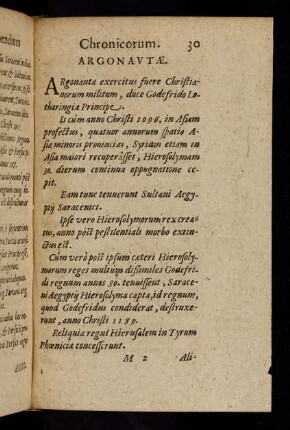 Chronicorum. 30
ARGONAVTÆ.
ARgonautæ exercitus fuere Christia-
norum militum, duce Godefrido Lo-
tharingiæ Principe.
Is cum anno Christi 1096. in Asiam
profectus, quatuor annorum spatio A-
siæ minoris prouincias, Syriam etiam in
Asia maiori recuperâsset, Hierosolymam
30. dierum continua oppugnatione ce-
pit.
Eam tunc tenuerunt Sultani Aegy-
ptij Saracenici.
Ipse verò Hierosolymorum rex crea-
tus, anno pòst pestilentiali morbo extin-
ctus est.
Cùm verò pòst ipsum cæteri Hierosoly-
marum reges multùm dissimiles Godefri-
di regnum annos 80. tenuissent, Sarace-
ni Aegyptij Hierosolyma capta, id regnum,
quod Godefridus condiderat, destruxe-
runt, anno Christi 1189.
Reliquiæ regni Hierusalem in Tyrum
Phœniciæ concesserunt.
M 2 Ali-